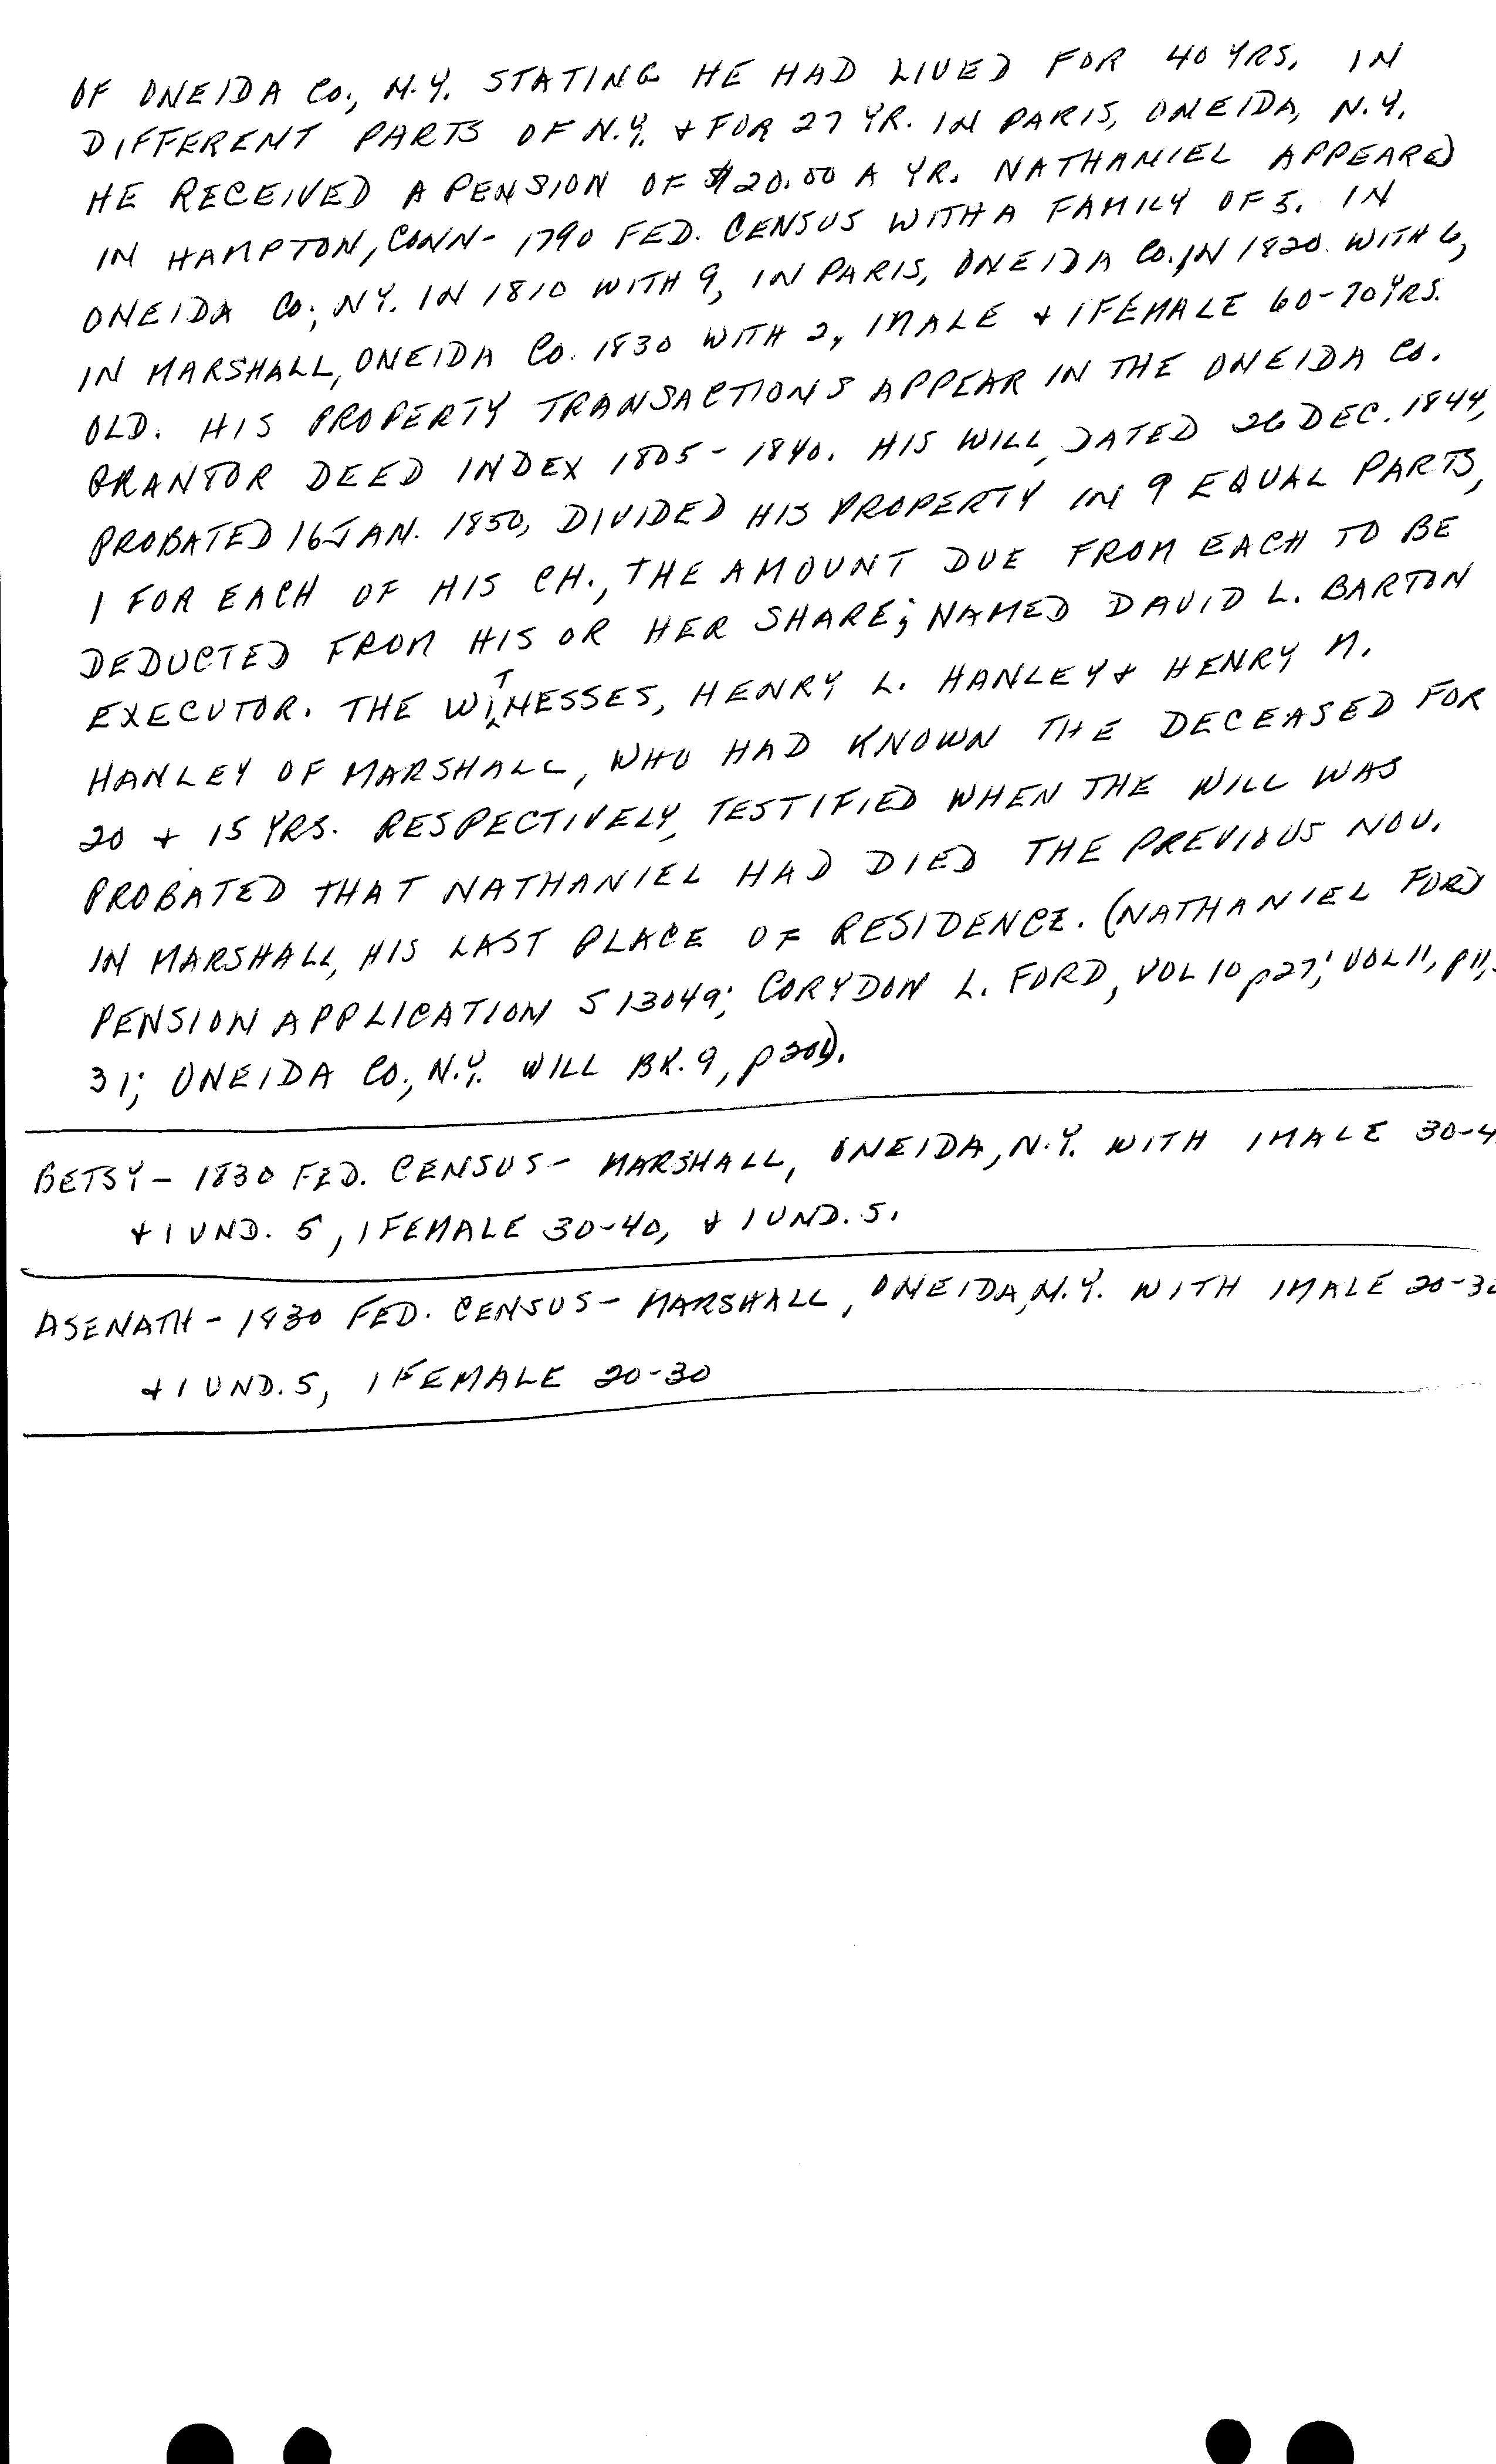 OF ONEIDA CO., N.Y. STATING HE HAD LIVED FOR 40 YRS. IN
DIFFERENT PARTS OF N.Y. & FOR 27 YR. IN PARIS, ONEIDA, N.Y.
HE RECEIVED A PENSION OF $20.00 A YR. NATHANIEL APPEARED
IN HAMPTON, CONN- 1790 FED. CENSUS WITH A FAMILY OF 5. IN
ONEIDA CO., N.Y. IN 1810 WITH 9, IN PARIS, ONEIDA CO. IN 1820 WITH 6,
IN MARSHALL, ONEIDA CO. 1830 WITH 2, 1 MALE & 1 FEMALE 60-70 YRS.
OLD. HIS PROPERTY TRANSACTIONS APPEAR IN THE ONEIDA CO.
GRANTOR DEED INDEX 1805-1840. HIS WILL, DATED 26 DEC. 1844,
PROBATED 16 JAN. 1850, DIVIDED HIS PROPERTY IN 9 EQUAL PARTS,
1 FOR EACH OF HIS CH., THE AMOUNT DUE FROM EACH TO BE
DEDUCTED FROM HIS OR HER SHARE; NAMED DAVID L. BARTON
EXECUTOR. THE WITNESSES, HENRY L. HANLEY & HENRY M.
HANLEY OF MARSHALL, WHO HAD KNOWN THE DECEASED FOR
20 & 15 YRS. RESPECTIVELY, TESTIFIED WHEN THE WILL WAS
PROBATED THAT NATHANIEL HAD DIED THE PREVIOUS NOV.
IN MARSHALL, HIS LAST PLACE OF RESIDENCE. (NATHANIEL FORD
PENSION APPLICATION S 13049; CORYDON L. FORD, VOL 10 p27; VOL 11, p11,
31; ONEIDA CO., N.Y. WILL BK. 9, p
BETSY - 1830 FED. CENSUS - MARSHALL, ONEIDA, N.Y. WITH 1 MALE 30-4
& 1 UND. 5, 1 FEMALE 30-40, & 1 UND. 5.
ASENATH - 1830 FED. CENSUS - MARSHALL, ONEIDA, N.Y. WITH 1 MALE 20-30
& 1 UND. 5, 1 FEMALE 20-30